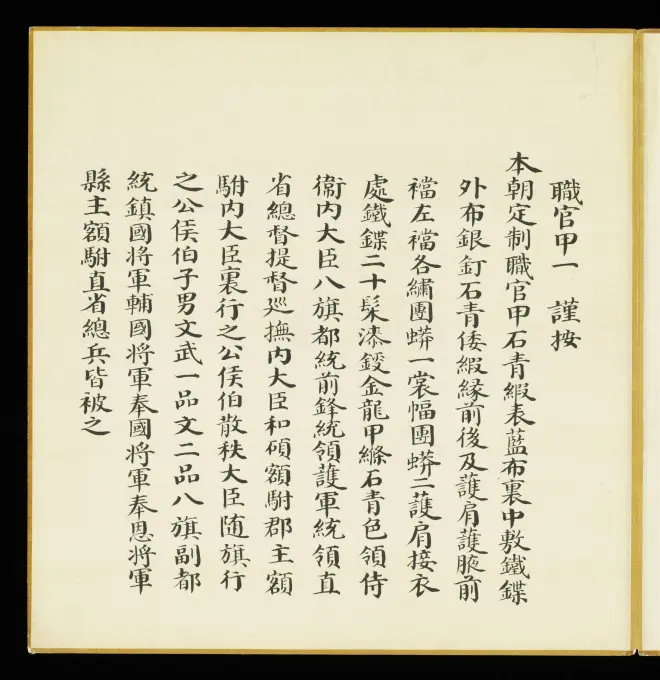 職官甲一 謹按
本朝定制職官甲石青緞表藍布裏中敷鐵鍱
外布銀釘石青倭緞緣前後及護肩護腋前
襠左襠各繡團蟒一裳幅團蟒二護肩接衣
處鐵鍱二十髹漆鋄金龍甲縧石青色領侍
衞內大臣八旗都統前鋒統領護軍統領直
省總督提督巡撫內大臣和碩額駙郡主額
駙內大臣裏行之公侯伯散秩大臣随旗行
之公侯伯子男文武一品文二品八旗副都
統鎮國將軍輔國將軍奉國將軍奉恩將軍
縣主額駙直省總兵皆被之